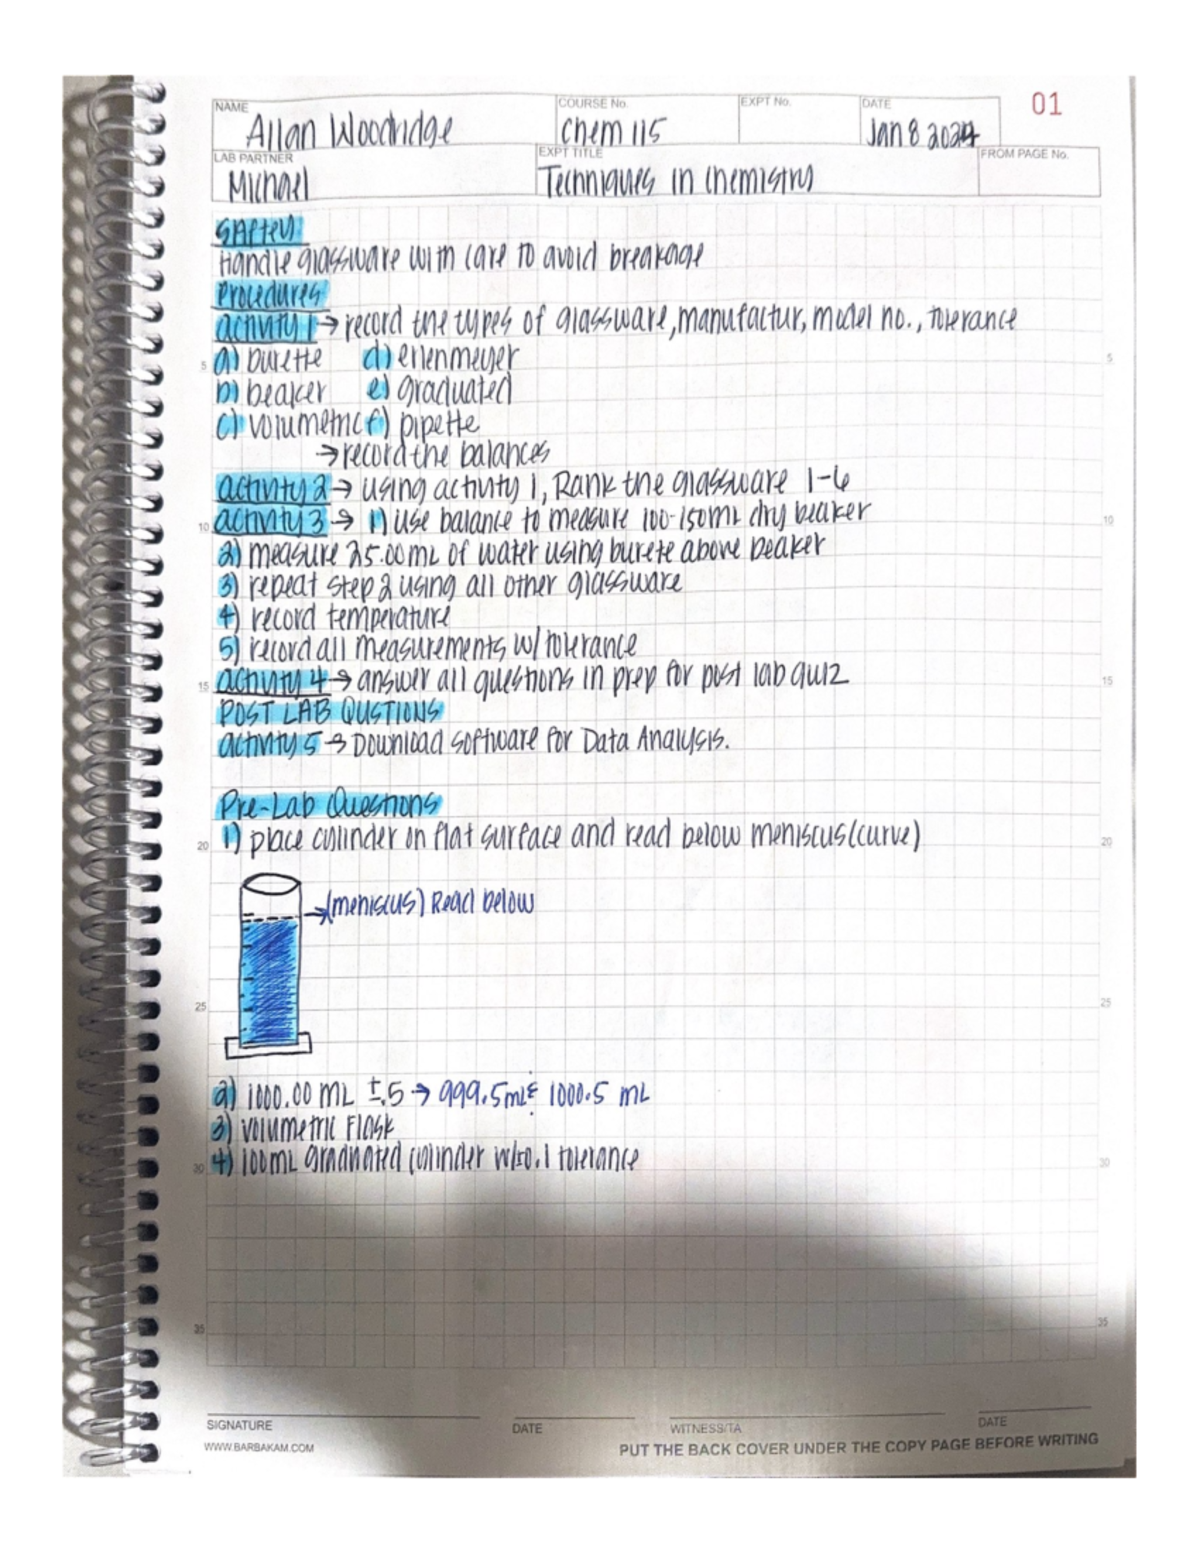 NAME COURSE No. EXPT No. DATE 01
Allan Woodridge Chem 115 Jan 8 2024
LAB PARTNER EXPT TITLE FROM PAGE No.
Michael Techniques in Chemistry
SAftey
Handle glassware with care to avoid breakage
Procedures
activity 1 → record the types of glassware, manufactur, model no., tolerance
5 a) burette d) erlenmeyer 5
b) beaker e) graduated
c) volumetric f) pipette
→ record the balances
activity 2 → using activity 1, Rank the glassware 1-6
10 activity 3 → 1) use balance to measure 100-150mL dry beaker 10
2) measure 25.00mL of water using burete above beaker
3) repeat step 2 using all other glassware
4) record temperature
5) record all measurements w/ tolerance
15 activity 4 → answer all questions in prep for post lab quiz 15
POST LAB QUSTIONS
activity 5 → Download software for Data Analysis.
Pre-Lab Questions
20 1) place cylinder on flat surface and read below meniscus (curve) 20
→ (meniscus) Read below
25 25
2) 1000.00 mL ±.5 → 999.5mL & 1000.5 mL
3) volumetric Flask
30 4) 100mL graduated cylinder w/±0.1 tolerance 30
35 35
SIGNATURE DATE WITNESS/TA DATE
WWW.BARBAKAM.COM PUT THE BACK COVER UNDER THE COPY PAGE BEFORE WRITING